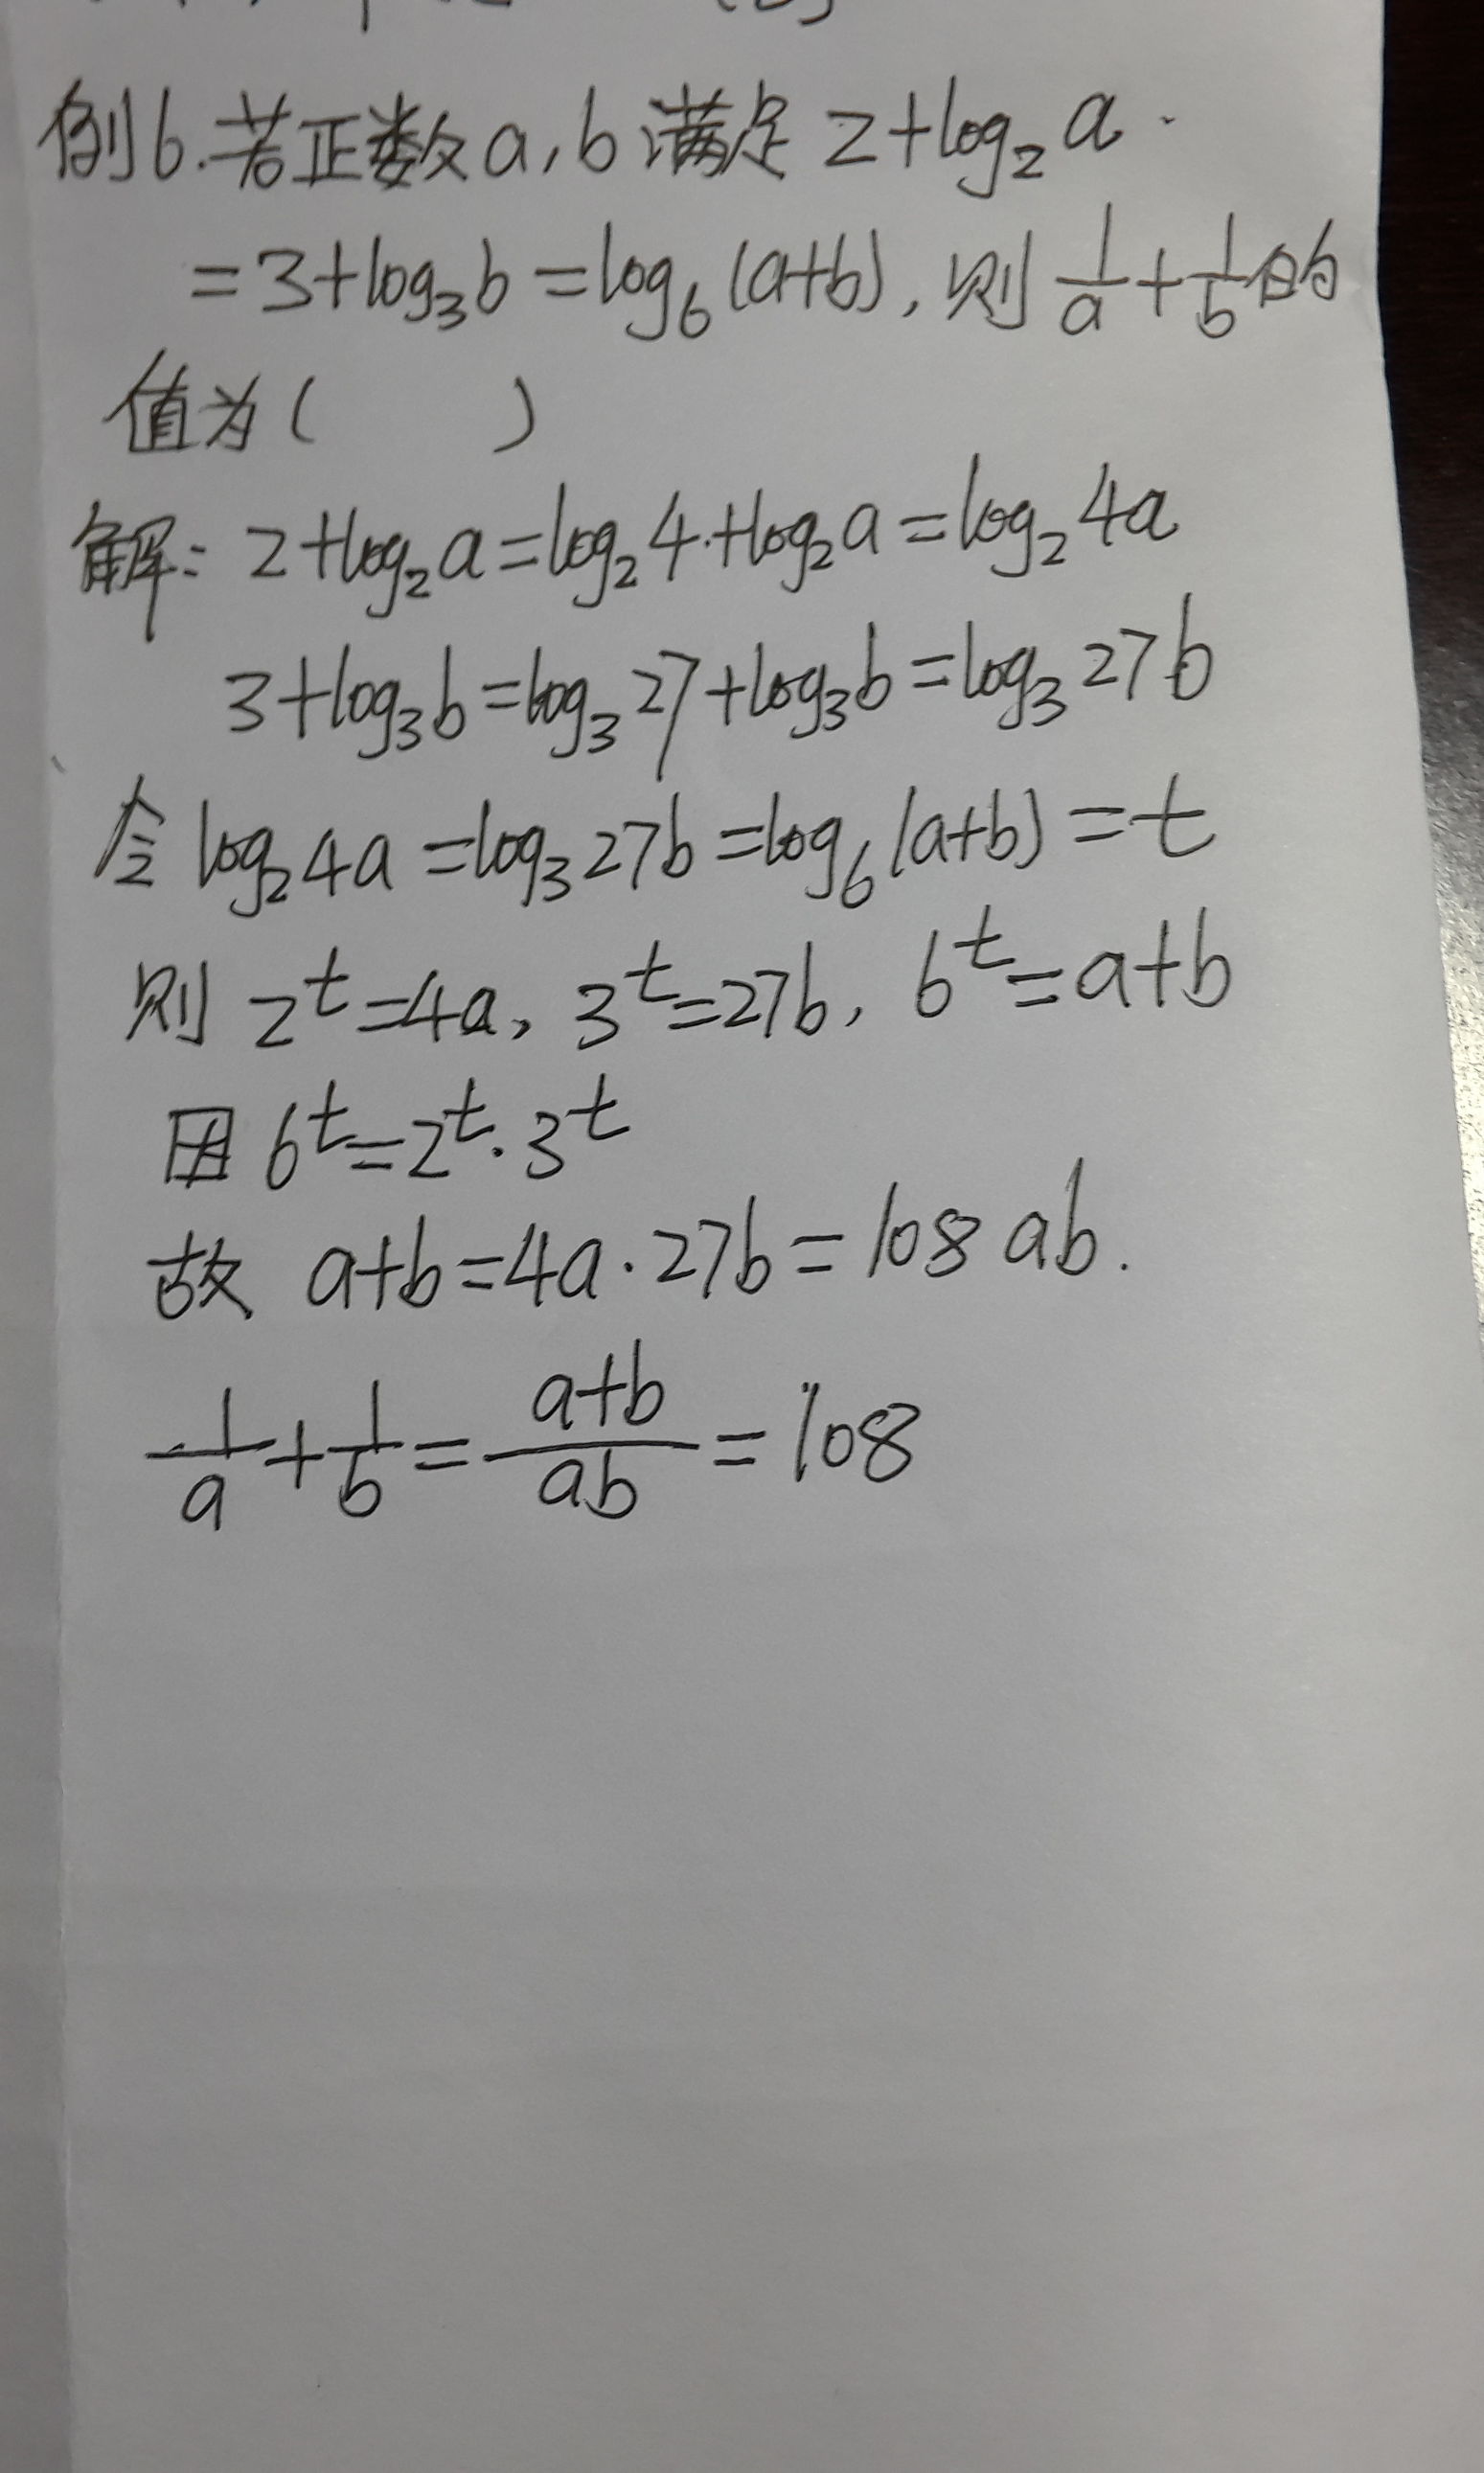 例6.若正数a,b满足 2+log₂a
=3+log₃b=log₆(a+b),则 1/a+1/b的
值为( )
解:2+log₂a=log₂4+log₂a=log₂4a
3+log₃b=log₃27+log₃b=log₃27b
令 log₂4a=log₃27b=log₆(a+b)=t
则 2^t=4a, 3^t=27b, 6^t=a+b
因 6^t=2^t·3^t
故 a+b=4a·27b=108ab.
1/a+1/b=(a+b)/ab=108